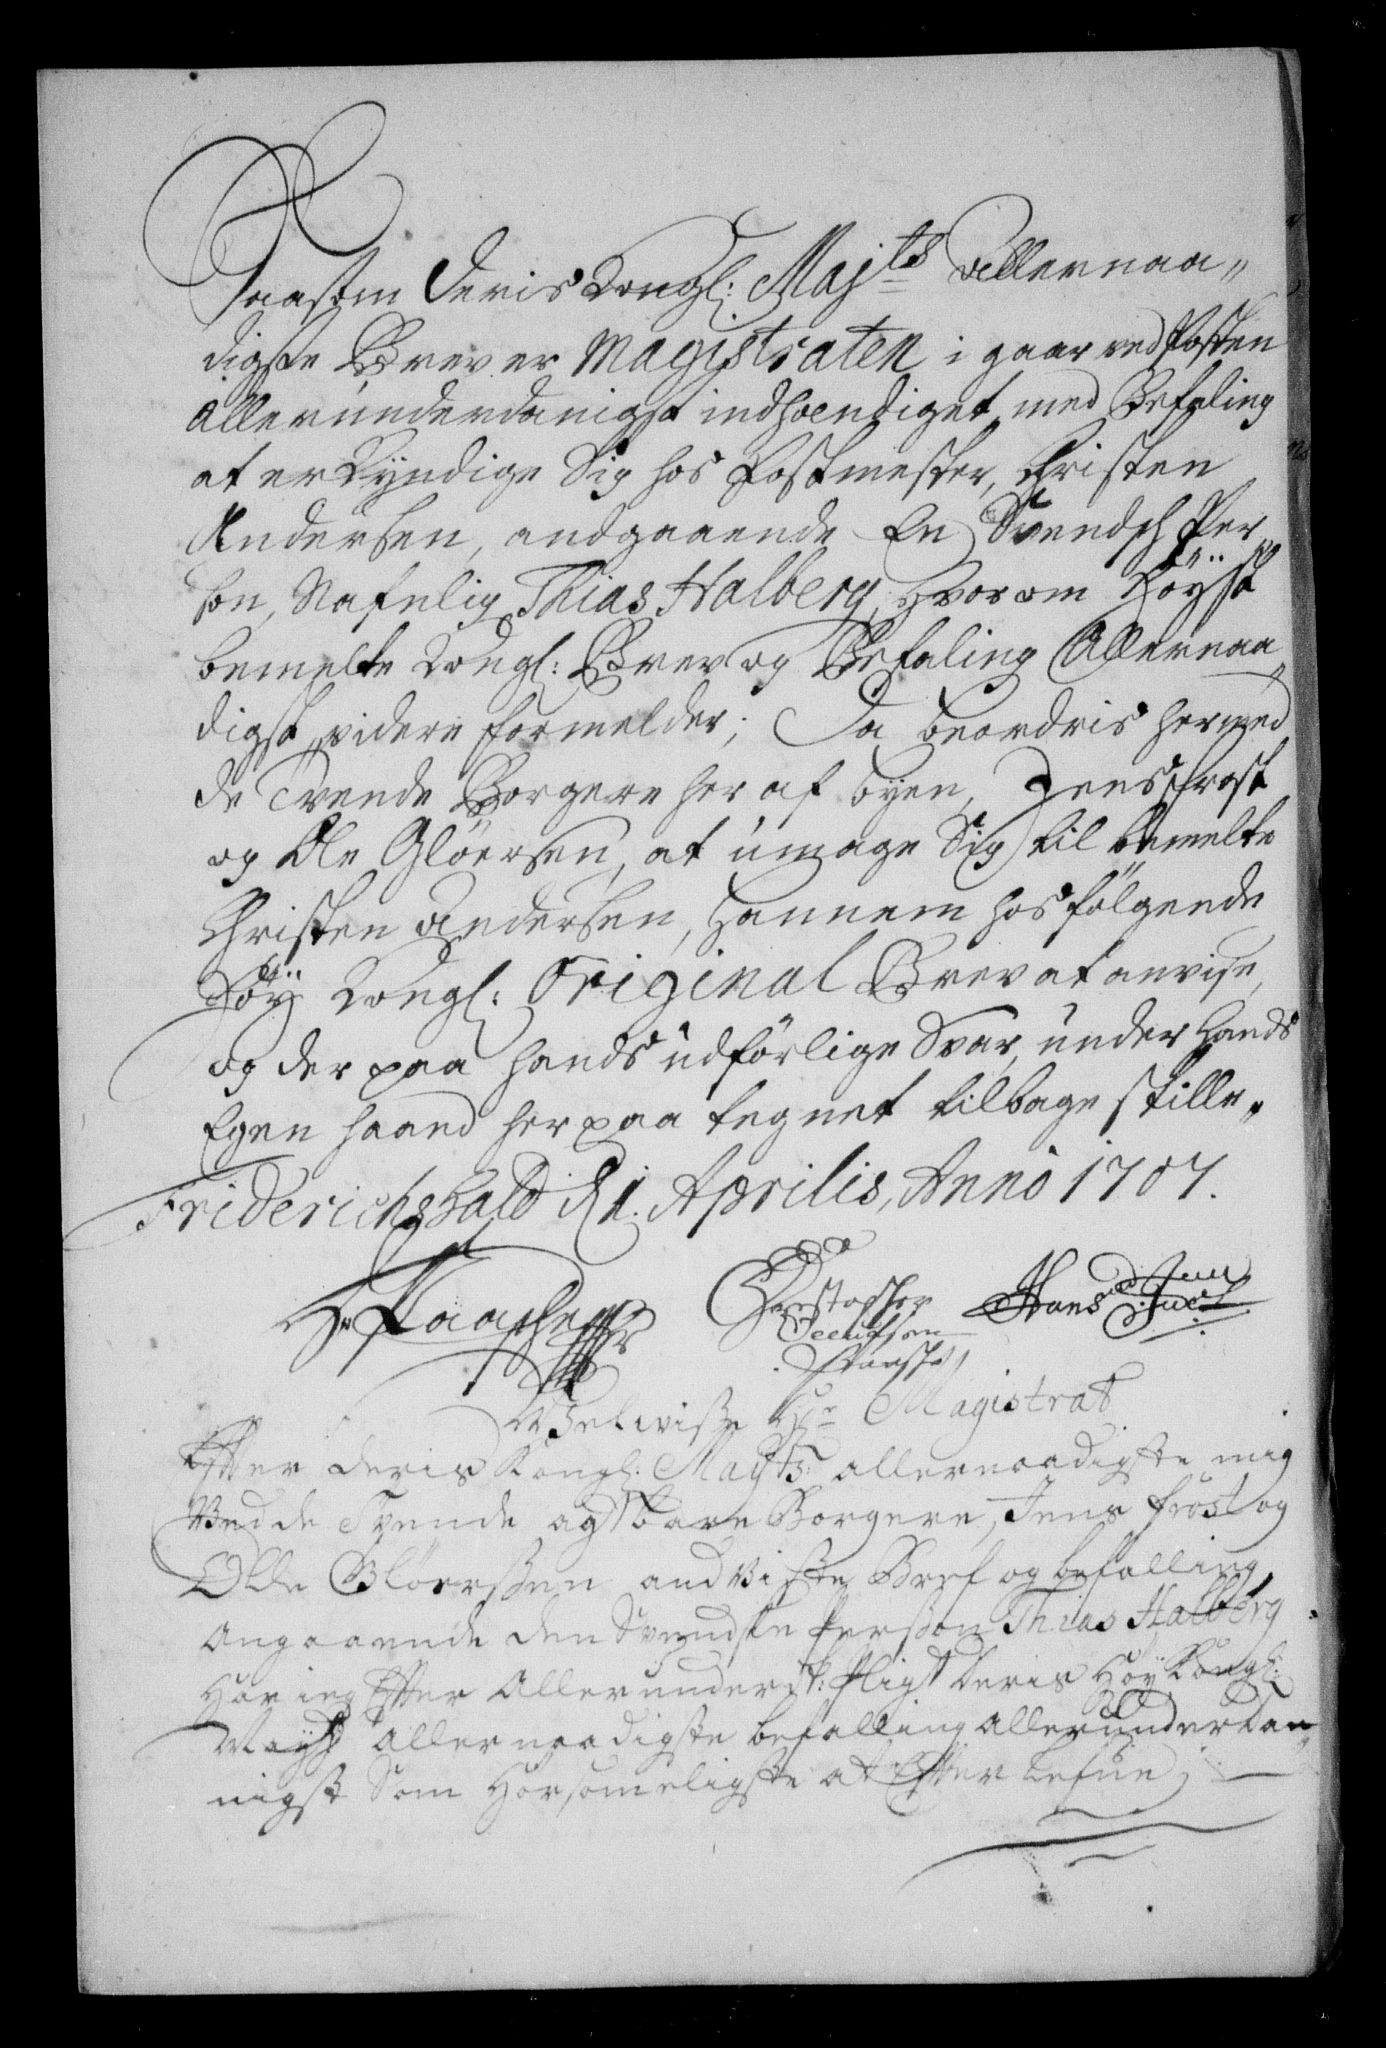 Saasom Deris Kongl: Maj^ts allernaa„
digste Brev er Magistraten i gaar ved Posten
allerunderdanigst indhændiget med Befaling
at erkyndige sig hos Postmester, Christen
Andersen, andgaaende En Svendsch Per„
son, Nafnlig Thias Halberg, hvorom höyst
bemelte Kongl: Brev og Befaling Allernaa„
digst videre formelder; Da beordris hermed
de Tvende Borgere her af byen, Jens Frost
og Ole Glöersen, at umage Sig til bemelte
Christen Andersen, hannem hosfölgende
Höy Kongl: Original Brev at anvise,
og der paa hands udförlige Svar, under hands
Egen haand her paa tegnet tilbage stille.
Friderichshald d 1. Aprilis, Anno 1707.
Christopher Hans
Velvise Hr Magistrat
Efter Deris Kongl: Mayts: allernaadigste mig
Ved de Tvende agtbare Borgere, Jens Frost og
Olle Glöerssen andviste Bref og befalling
Angaaende den Svendske Persson Thias Halberg
Har ieg Efter Allerunderd: Pligt Deris Höy Kongl:
Mayts Allernaadigste befalling Allerunderdan„
nigst Som Horsomeligste at Efter lefue